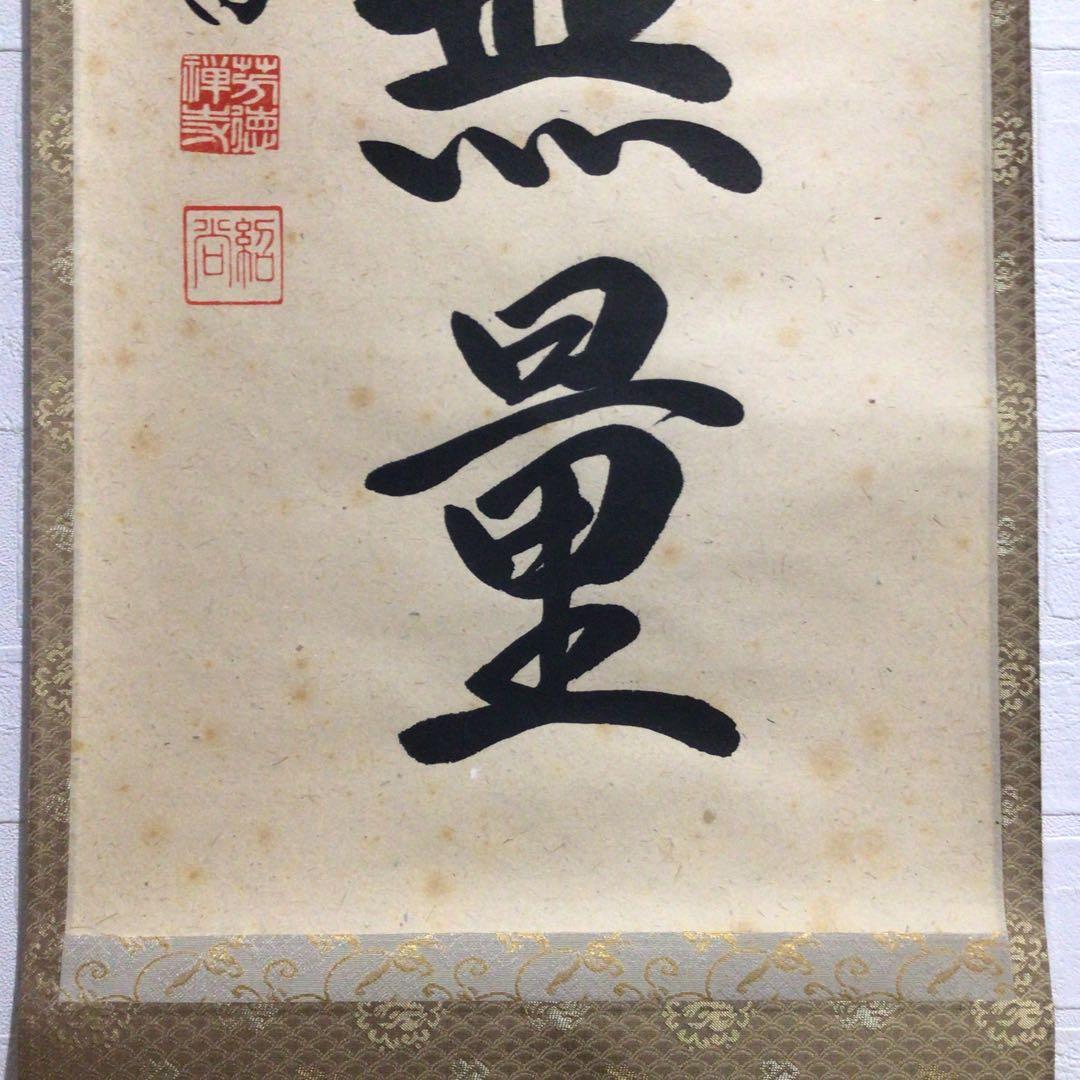 無量
芳徳禅寺
紹尚